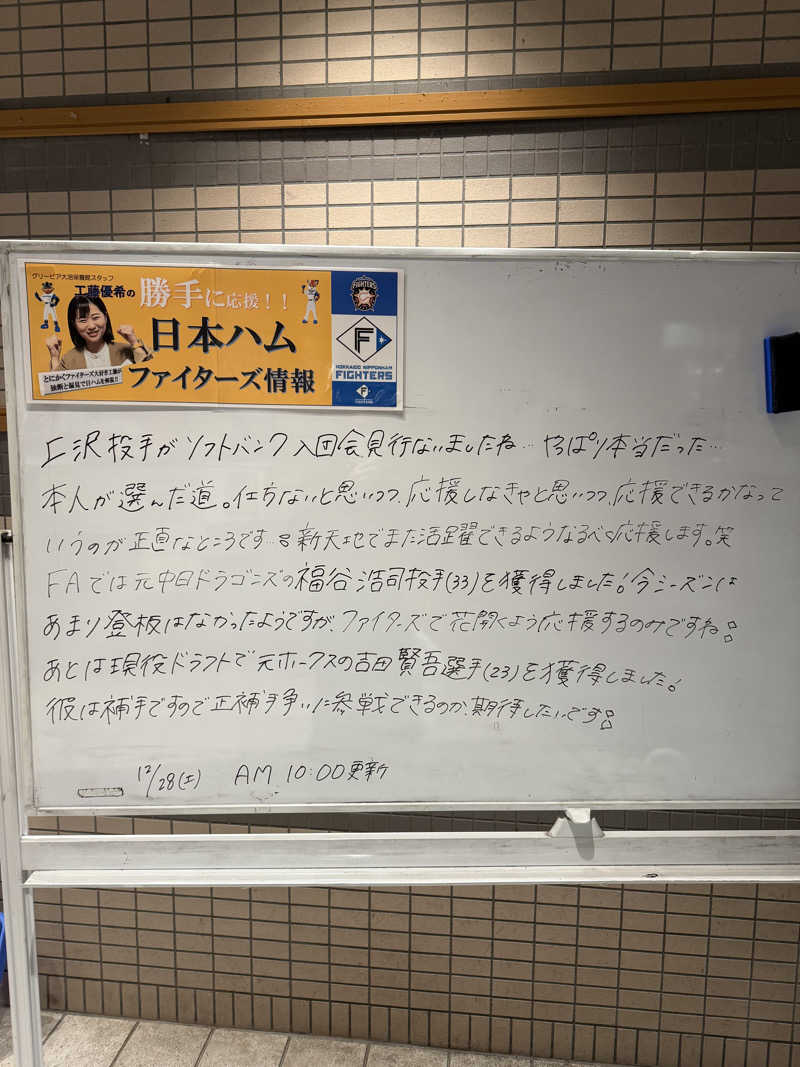 グリーンピア大沼保養館スタッフ
工藤優希の 勝手に応援!!
日本ハム
ファイターズ情報
とにかくファイターズ大好き工藤が
独断と偏見で日ハムを解説!!
FIGHTERS
F
HOKKAIDO NIPPONHAM
FIGHTERS
F
FIGHTERS
上沢投手がソフトバンク入団会見行ないましたね…やっぱり本当だった…
本人が選んだ道。仕方ないと思いつつ、応援しなきゃと思いつつ、応援できるかなって
いうのが正直なところです…!新天地でまた活躍できるようなるべく応援します。笑
FAでは元中日ドラゴンズの福谷浩司投手(33)を獲得しました!今シーズンは
あまり登板はなかったようですが、ファイターズで花開くよう応援するのみですね!
あとは現役ドラフトで元ホークスの吉田賢吾選手(23)を獲得しました!
彼は補手ですので正補手争いに参戦できるのか、期待したいです!
12/28(土) AM 10:00更新